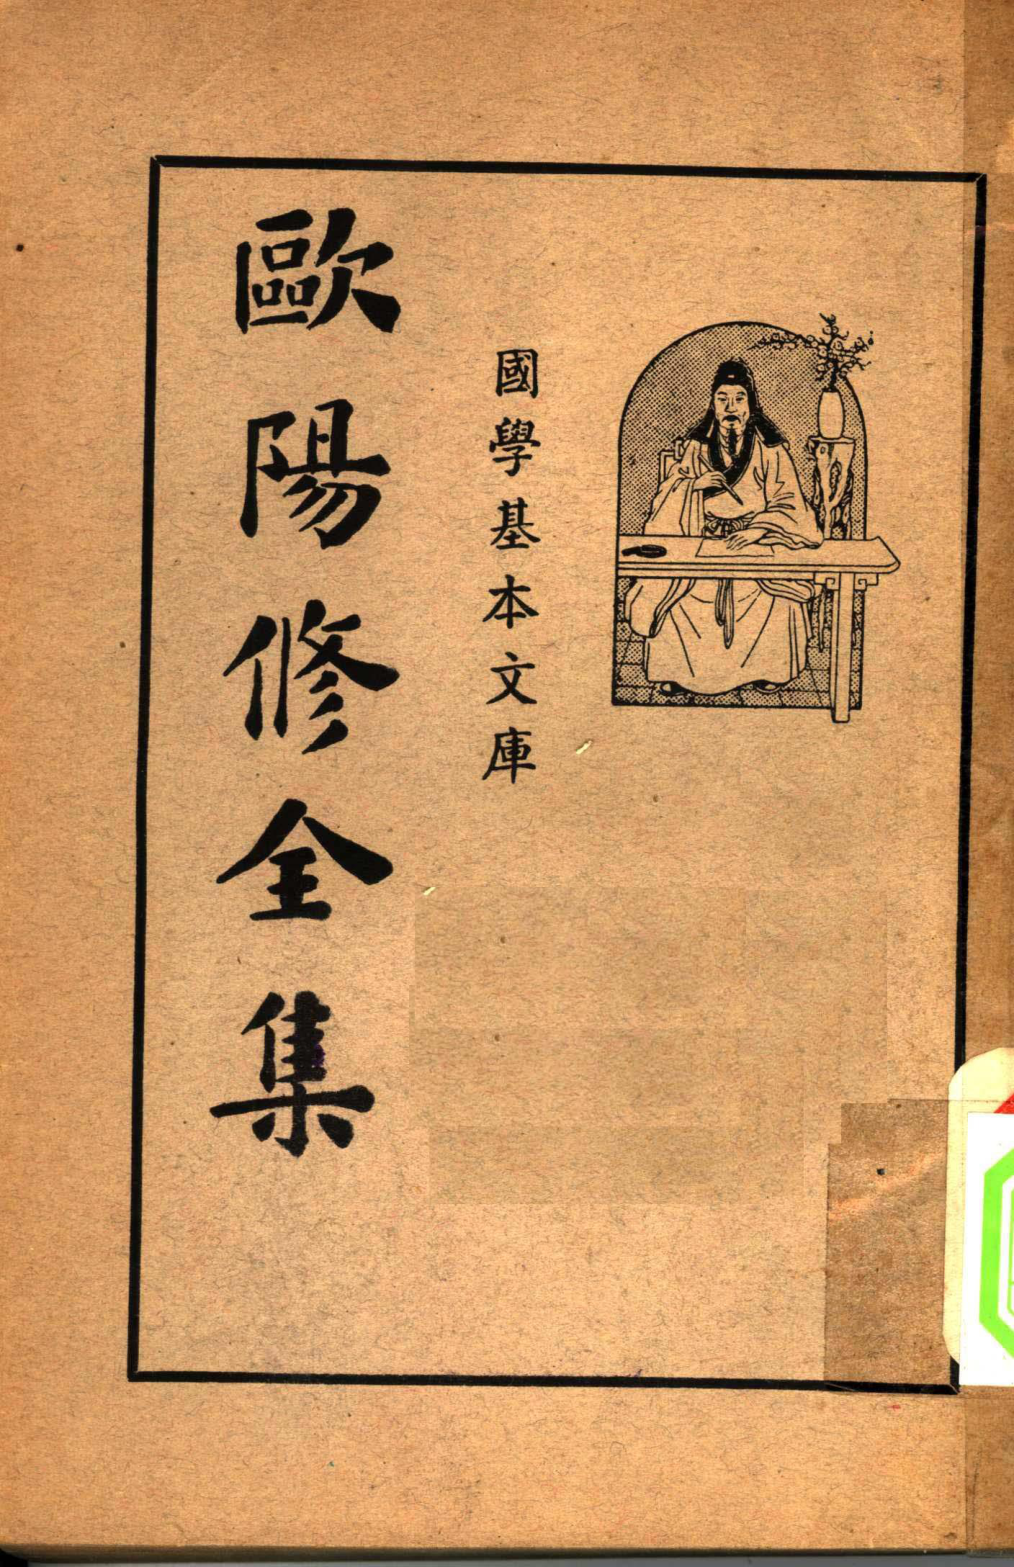 國學基本文庫
歐陽修全集